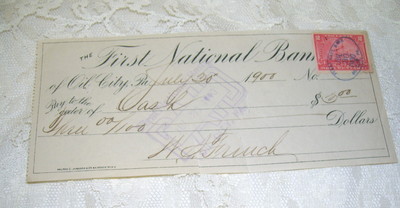 THE First National Bank
of Oil City, Pa. July 20 1900 No.
Pay to the
order of Cash $3.00
Three 00/100 Dollars
French